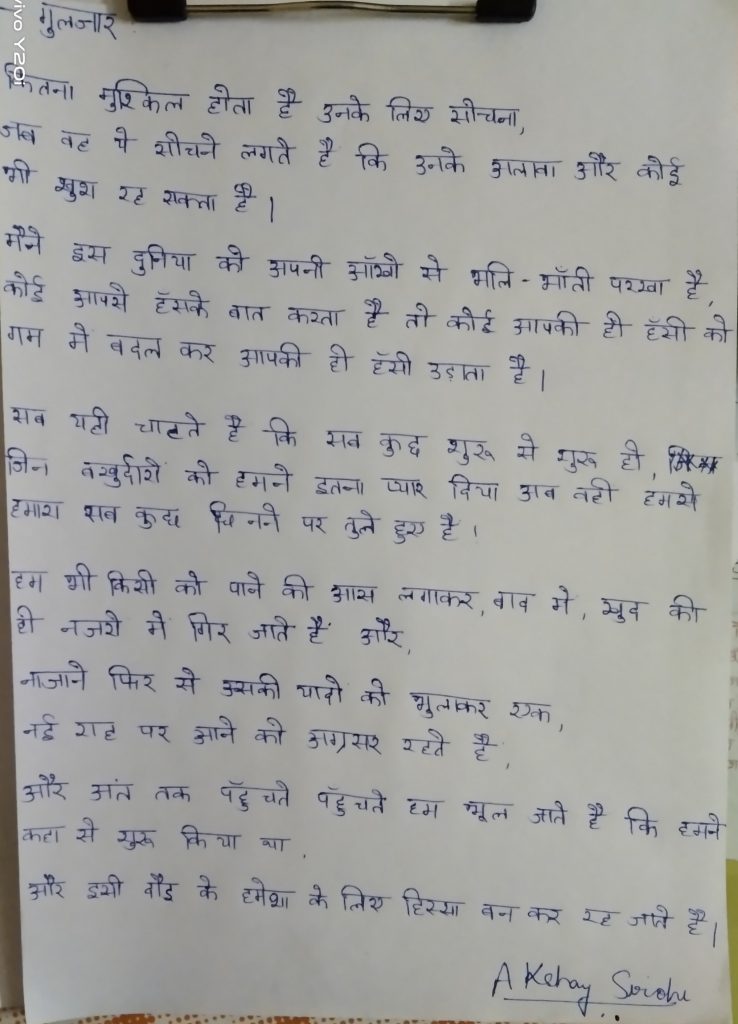 vivo Y20i
- गुलजार
कितना मुश्किल होता है उनके लिए सोचना,
जब वह ये सोचने लगते है कि उनके अलावा और कोई
भी खुश रह सकता है।
मैने इस दुनिया को अपनी आँखो से भलि-भाँती परखा है,
कोई आपसे हँसके बात करता है तो कोई आपकी ही हँसी को
गम मे बदल कर आपकी ही हँसी उड़ाता है।
सब यही चाहते है कि सब कुछ शुरू से शुरू हो,
जिन बखुर्दारो को हमने इतना प्यार दिया अब वही हमसे
हमारा सब कुछ छिनने पर तुले हुए है।
हम भी किसी को पाने की आस लगाकर, बाद मे, खुद की
ही नजरो मे गिर जाते हैं और,
नाजाने फिर से उसकी यादो को भुलाकर एक,
नई राह पर आने को अग्रसर रहते है,
और अंत तक पहुँचते पहुँचते हम भूल जाते है कि हमने
कहा से शुरू किया था,
और इसी दौड़ के हमेशा के लिए हिस्सा बन कर रह जाते है।